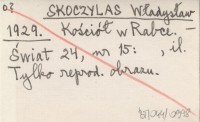 o.z.
SKOCZYLAS Władysław
1929. Kościół w Rabce. –
Świat 24, nr 15: , il.
Tylko reprod. obrazu.